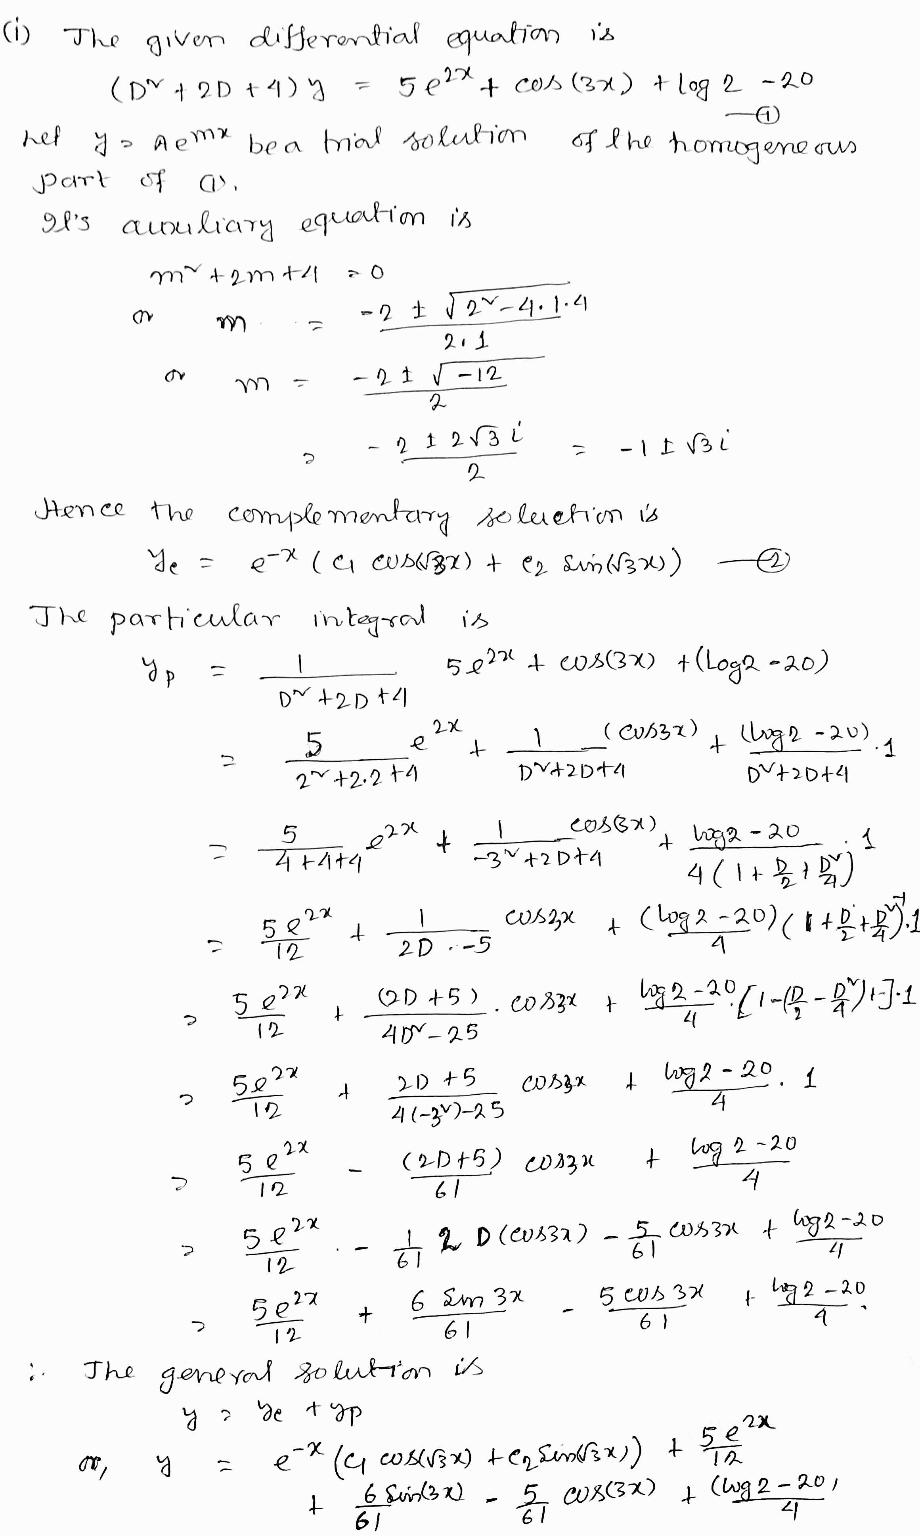 (i) The given differential equation is
(D² + 2D + 4) y = 5e^{2x} + cos (3x) + log 2 - 20
—①
Let y = Ae^{mx} be a trial solution of the homogeneous
part of ①.
It's auxuliary equation is
m² + 2m + 4 = 0
or m = (-2 ± √(2² - 4.1.4)) / 2.1
or m = (-2 ± √-12) / 2
= (-2 ± 2√3 i) / 2 = -1 ± √3 i
Hence the complementary soluction is
y_c = e^{-x} (c₁ cos(√3x) + c₂ sin(√3x)) —②
The particular integral is
y_p = 1/(D² + 2D + 4) 5e^{2x} + cos(3x) + (log2 - 20)
= 5/(2² + 2.2 + 4) e^{2x} + 1/(D² + 2D + 4) (cos3x) + (log 2 - 20)/(D² + 2D + 4) . 1
= 5/(4 + 4 + 4) e^{2x} + 1/(-3² + 2D + 4) cos(3x) + (log2 - 20)/(4(1 + D/2 + D²/4)) . 1
= 5e^{2x}/12 + 1/(2D - 5) cos3x + (log 2 - 20)/4 (1 + D/2 + D²/4)^{-1}.1
= 5e^{2x}/12 + (2D + 5)/(4D² - 25) . cos3x + (log 2 - 20)/4 . [1 - (D/2 - D²/4) + -].1
= 5e^{2x}/12 + (2D + 5)/(4(-3²) - 25) cos3x + (log2 - 20)/4 . 1
= 5e^{2x}/12 - (2D + 5)/61 cos3x + (log 2 - 20)/4
= 5e^{2x}/12 - 1/61 2 D(cos3x) - 5/61 cos3x + (log2 - 20)/4
= 5e^{2x}/12 + 6 Sin 3x/61 - 5 cos 3x/61 + (log 2 - 20)/4.
∴ The general solution is
y = y_c + y_p
or, y = e^{-x} (c₁ cos(√3x) + c₂ Sin(√3x)) + 5e^{2x}/12
+ 6 Sin(3x)/61 - 5/61 cos(3x) + (log 2 - 20)/4